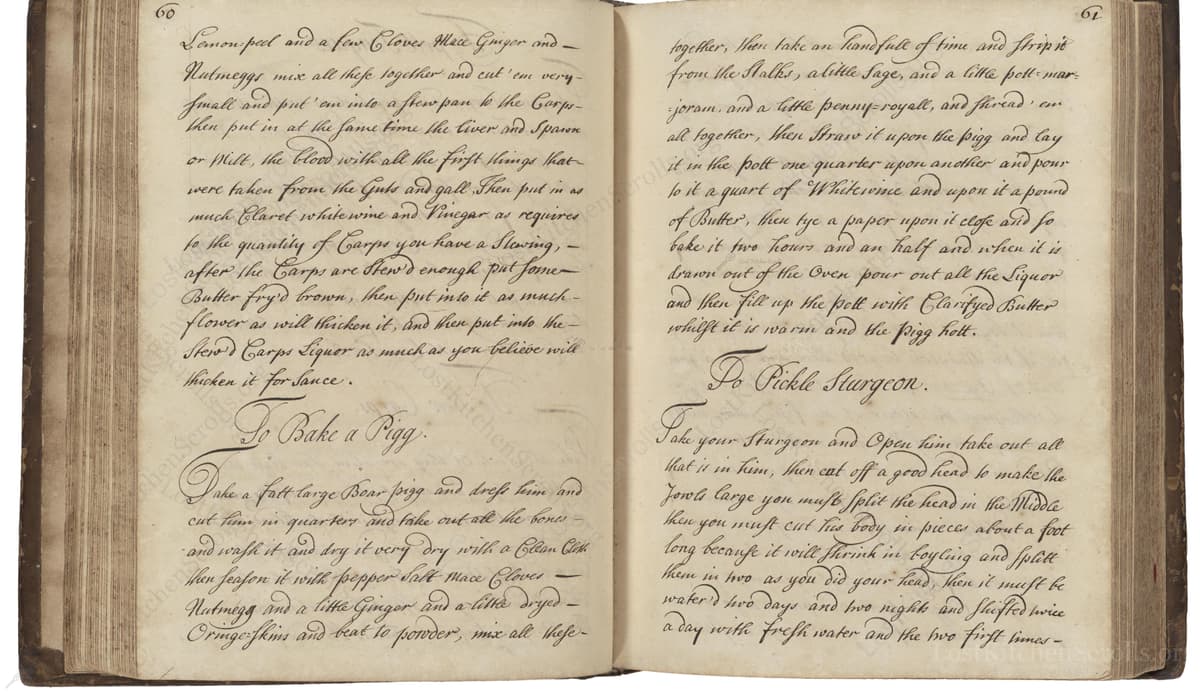 60
Lemon-peel and a few Cloves Mace Ginger and—
Nutmeggs mix all these together and cut 'em very-
small and put 'em into a stew pan to the Carps-
then put in at the same time the liver and Spawn
or Milt, the blood with all the first things that-
were taken from the Guts and gall, Then put in as
much Claret white wine and Vinegar as requires
to the quantity of Carps you have a Stewing,—
after the Carps are Stew'd enough put some—
Butter fry'd brown, then put into it as much-
flower as will thicken it, and then put into the-
Stew'd Carps Liquor as much as you believe will
thicken it for Sauce.
To Bake a Pigg.
Take a fatt large Boar pigg and dress him, and
cut him in quarters and take out all the bones-
and wash it and dry it very dry with a Clean Cloth
then season it with pepper Salt Mace Cloves—
Nutmegg and a little Ginger and a little dryed—
Oringe-skins and beat to powder, mix all these-
61
together, then take an handfull of time and strip it
from the Stalks, a little Sage, and a little pott=mar-
=joram, and a little penny=royall, and shread 'em
all together, then Straw it upon the pigg and lay
it in the pott one quarter upon another and pour
to it a quart of Whitewine and upon it a pound
of Butter, then tye a paper upon it close and so
bake it two hours and an half and when it is
drawn out of the Oven pour out all the Liquor
and then fill up the pott with Clarifyed Butter
whilst it is warm and the pigg hott.
To Pickle Sturgeon.
Take your Sturgeon and Open him take out all
that is in him, then cut off a good head to make the
Jowls large you must split the head in the Middle
then you must cut his body in pieces about a foot
long because it will shrink in boyling and splitt
them in two as you did your head, then it must be
water'd two days and two nights and shifted twice
a day with fresh water and the two first times-
LostKitchenScrolls.or